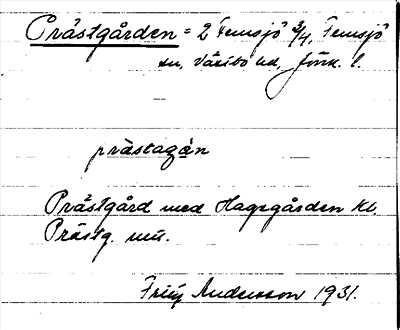 Prästgården = 2 Femsjö 3/4, Femsjö
sn, Västbo hd, Jönk. l.
prästagån
Prästgård med Hagagården Kl.
Prästg. mu.
Andersson 1931.